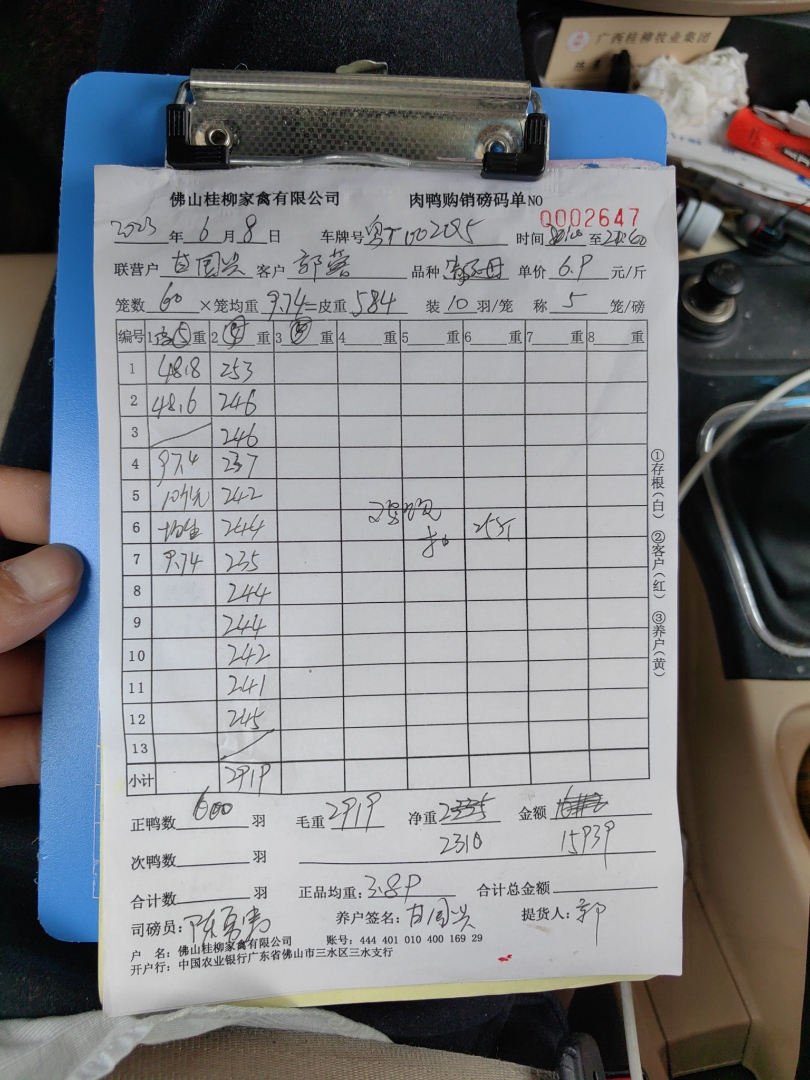 广西桂柳牧业集团
佛山桂柳家禽有限公司 肉鸭购销磅码单NO 0002647
2023年6月8日 车牌号 时间 至
联营户甘国兴 客户郭营 品种 单价6.9元/斤
笼数60×笼均重9.74=皮重584 装10羽/笼 称5笼/磅
编号 1 重 2 重 3 重 4 重 5 重 6 重 7 重 8 重
1 48.8 253
2 48.6 246
3 246
4 97.4 237
5 242
6 244
7 9.74 235
8 244
9 244
10 242
11 241
12 245
13
小计 2919
扣 25斤
①存根(白) ②客户(红) ③养户(黄)
正鸭数600羽 毛重2919 净重2335 金额
2310 15939
次鸭数 羽
合计数 羽 正品均重:3.89 合计总金额
司磅员: 养户签名:甘国兴 提货人:郭
户 名:佛山桂柳家禽有限公司 账号:444 401 010 400 169 29
开户行:中国农业银行广东省佛山市三水区三水支行